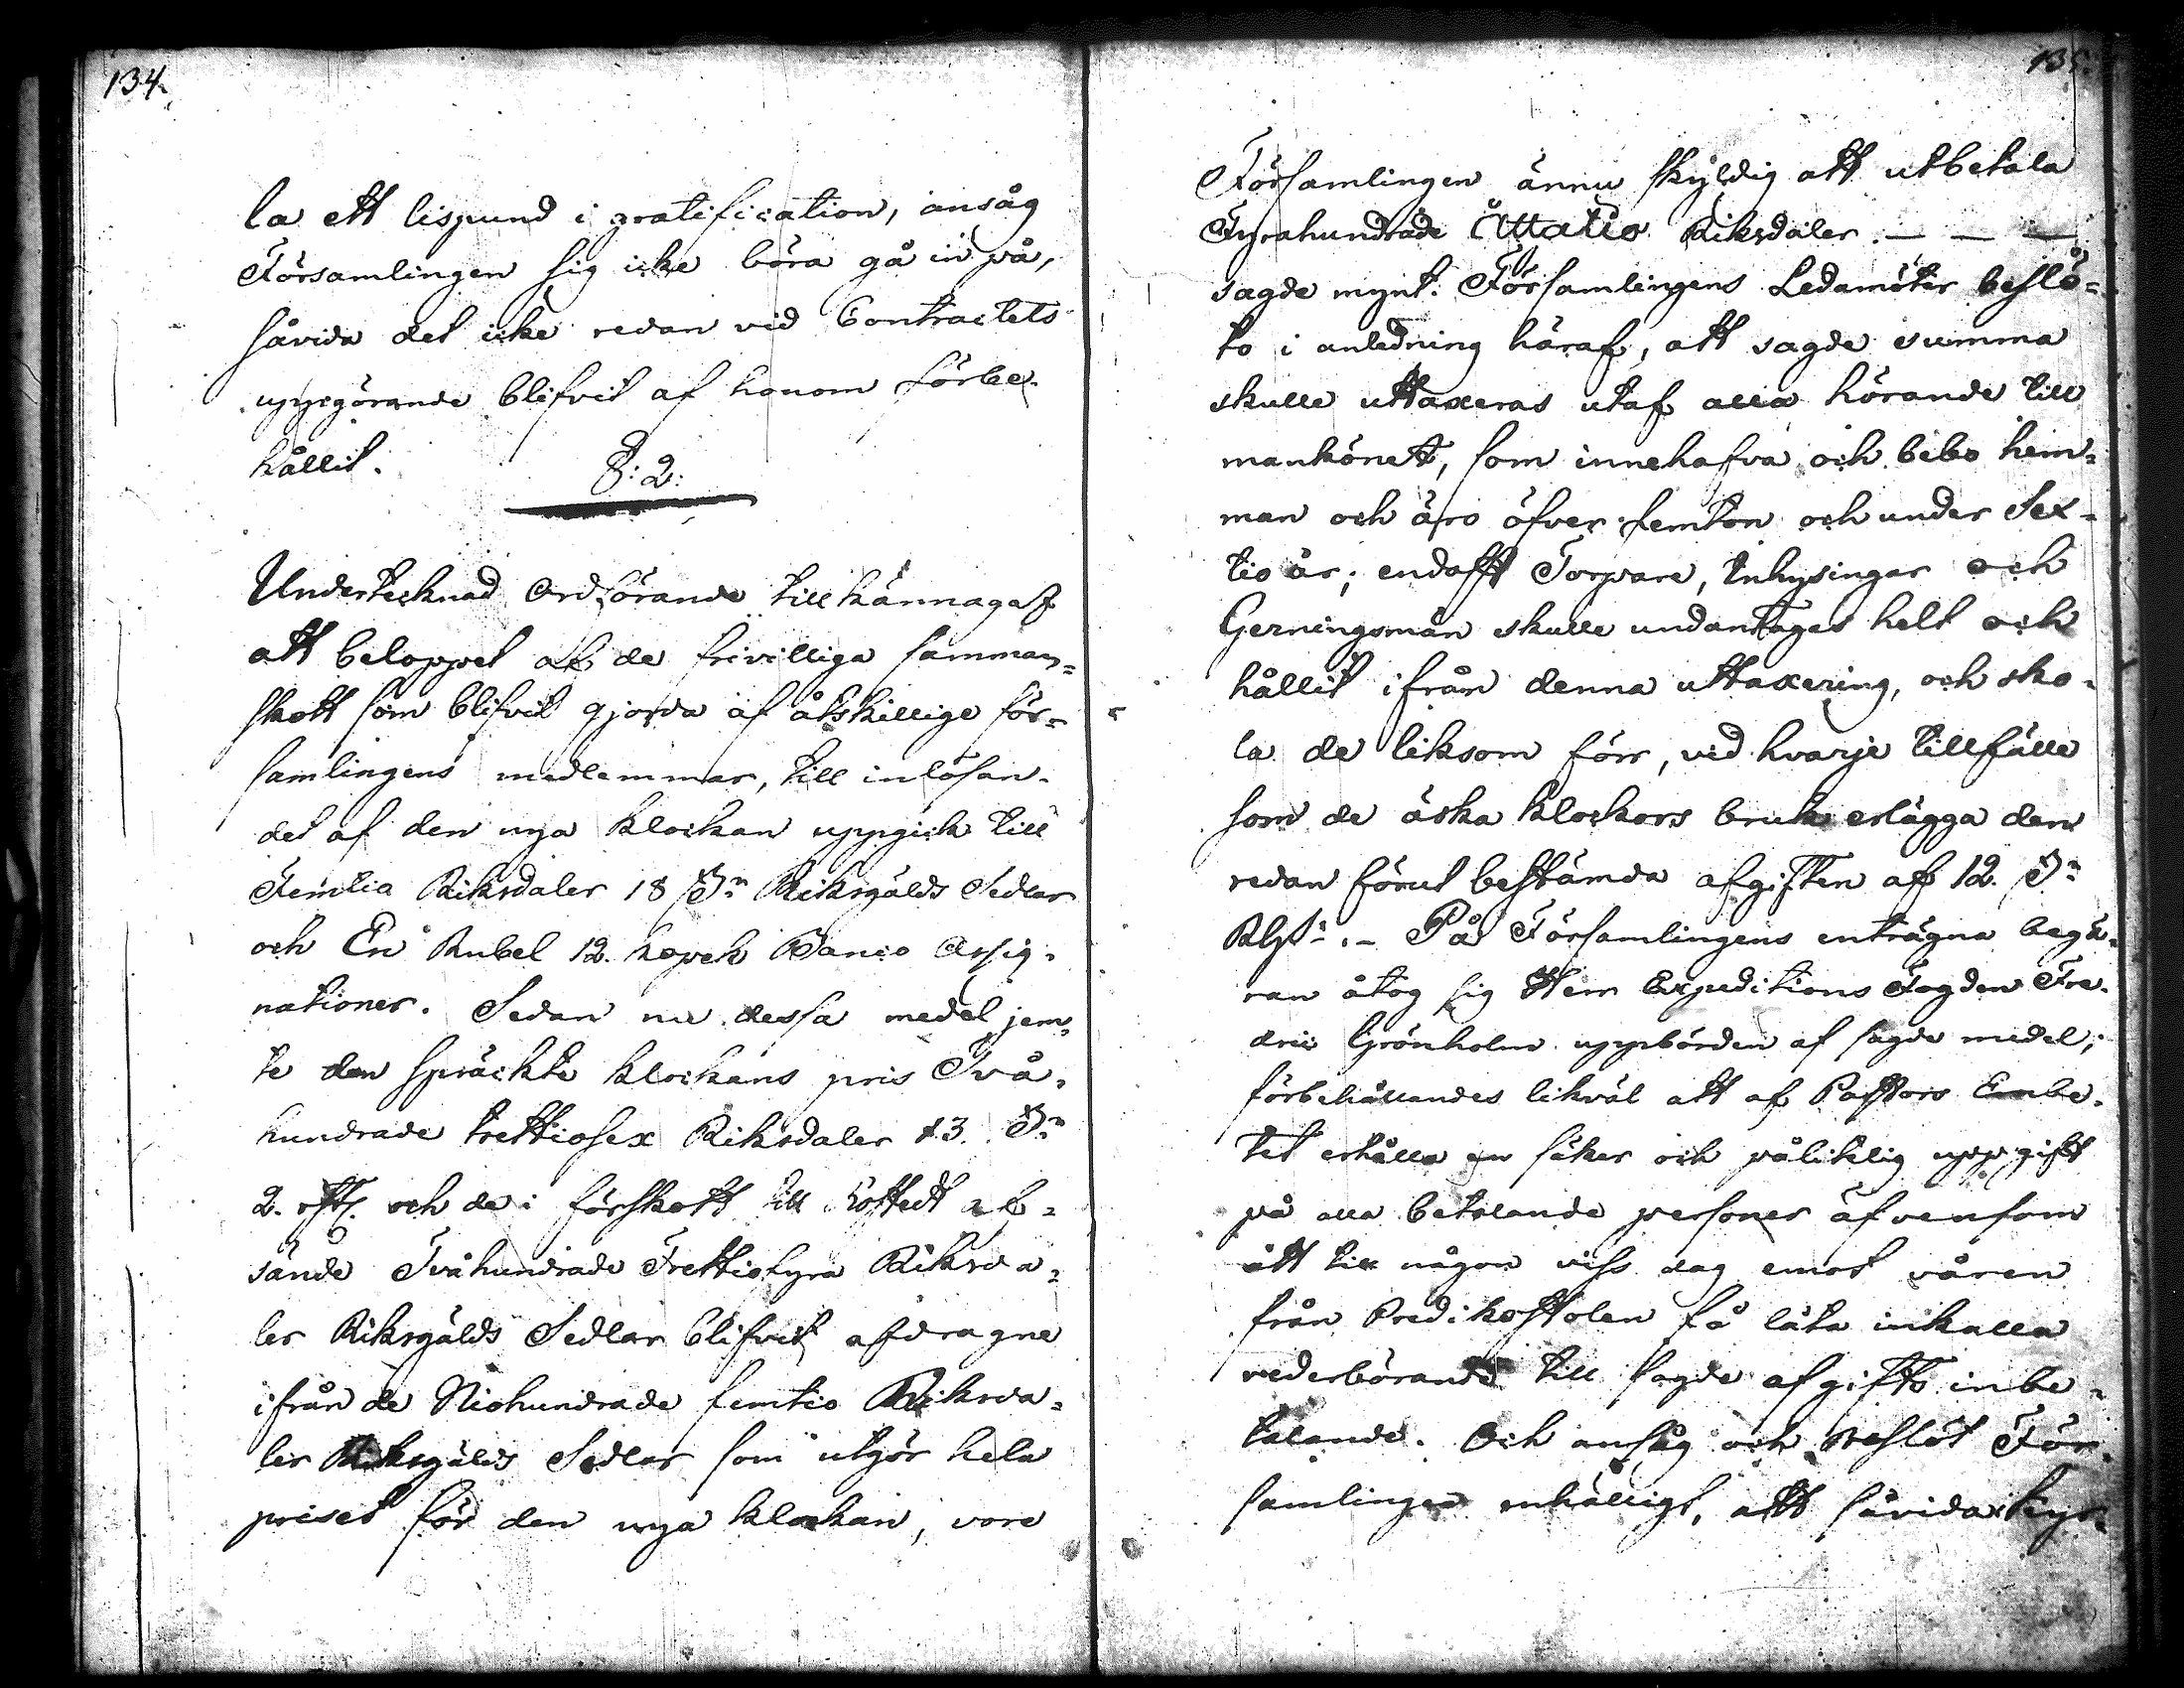 134.
la ett lispund i gratification, ansåg
Församlingen sig icke böra gå in på,
såvida det icke redan vid Contractets
uppgörande blifvit af honom förbe-
hållit.
§: 2:
Undertecknad Ordförande tillkännagaf
att beloppet af de frivilliga samman-
skott som blifvit gjorda af åtskillige för-
samlingens medlemmar, till inlösan-
det af den nya klockan uppgick till
Femtia Riksdaler 18 s:r Riksgälds Sedlar
och En Rubel 12. kopek Banco Assig-
nationer. Sedan nu dessa medel jem-
te den spräckte klockans pris Två-
hundrade trettiosex Riksdaler 13. s:r
2. och de i förskott till af-
sände Tvåhundrade Trettiofyra Riksda-
ler Riksgälds Sedlar blifvit afdragne
ifrån de Niohundrade femtio Riksda-
ler Riksgälds Sedlar som utgör hela
priset för den nya klockan, vore
135.
Församlingen ännu skyldig att utbetala
Fyrahundrade Åttatio Riksdaler. — — —
sagde mynt. Församlingens Ledamöter beslö-
to i anledning häraf, att sagde summa
skulle uttaxeras utaf alla hörande till
mankönet, som innehafva och bebo hem-
man och äro öfver femton och under Sex-
tio år; endast Torpare, Inhysingar och
Gerningsmän skulle undantages helt och
hållit ifrån denna uttaxering, och sko-
la de liksom förr, vid hvarje tillfälle
som de äska klockors bruk erlägga den
redan förut bestämda afgiften af 12. s:r
Rgs:r. - På Församlingens enträgna begä-
ran åtog sig Herr Expeditions Fogden Fre-
dric Grönholm uppbörden af sagde medel;
förbehållandes likväl att af Pastors Embe-
tet erhålla en säker och pålitlig uppgift
på alla betalande personer äfvensom
att till någon viss dag emot våren
från Predikostolen få låta inkalla
vederbörande till sagde afgifts inbe-
talande. Och ansåg och beslöt För-
samlingen enhälligt, att såvida kyr-